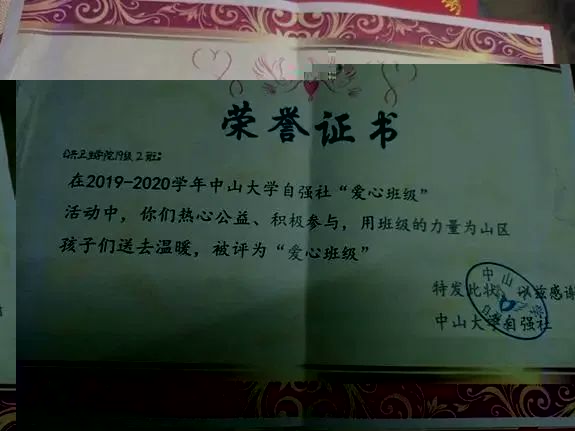 荣誉证书
公共卫生学院19级2班:
在2019-2020学年中山大学自强社“爱心班级”
活动中，你们热心公益、积极参与，用班级的力量为山区
孩子们送去温暖，被评为“爱心班级”
特发此状，以兹感谢
中山大学自强社